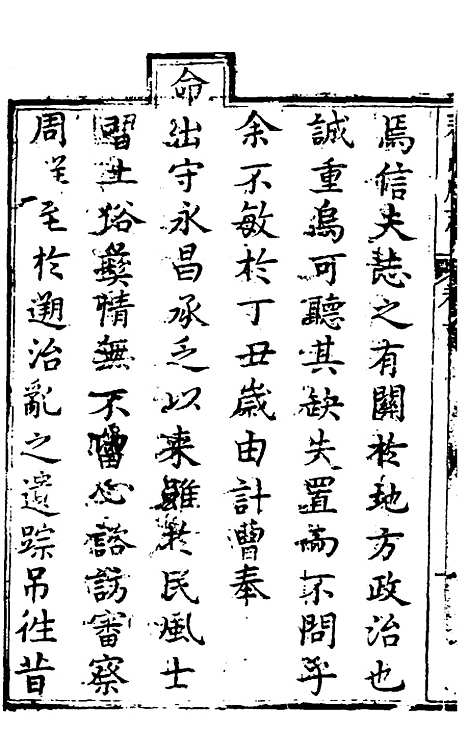 焉信夫誌之有關於地方政治也
誠重烏可聽其缺失置而不問乎
余不敏於丁丑歲由計曹奉
命出守永昌承乏以来雖於民風士
習土俗彜情無不留心諮訪審察
周至至於遡治亂之遺踪吊徃昔